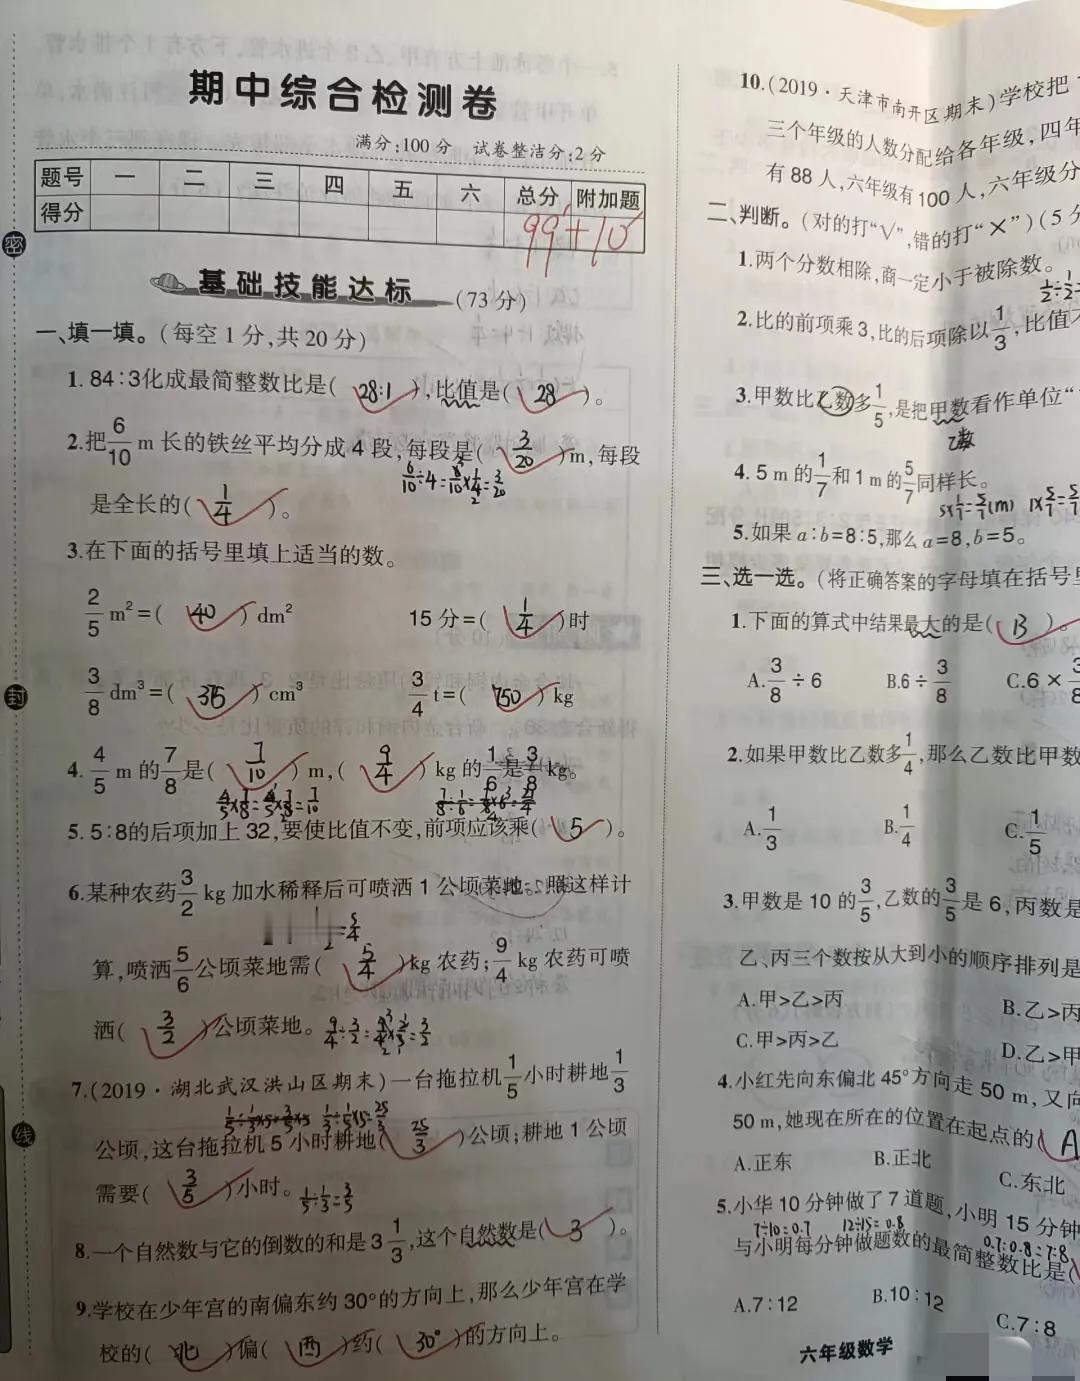 期中综合检测卷
满分:100分 试卷整洁分:2分
题号 一 二 三 四 五 六 总分 附加题
得分 99+10
基础技能达标 (73分)
一、填一填。(每空1分,共20分)
1. 84:3化成最简整数比是( 28:1 ),比值是( 28 )。
2.把6/10 m长的铁丝平均分成4段,每段是( 3/20 )m,每段
6/10÷4=6/10×1/4=3/20
是全长的( 1/4 )。
3.在下面的括号里填上适当的数。
2/5 m²=( 40 )dm² 15分=( 1/4 )时
3/8 dm³=( 375 )cm³ 3/4 t=( 750 )kg
4. 4/5 m的7/8是( 7/10 )m,( 9/4 )kg的1/6是3/8 kg。
5. 5:8的后项加上32,要使比值不变,前项应该乘( 5 )。
6.某种农药3/2 kg加水稀释后可喷洒1公顷菜地。照这样计
算,喷洒5/6公顷菜地需( 5/4 )kg农药;9/4 kg农药可喷
洒( 3/2 )公顷菜地。 9/4÷3/2=9/4×2/3=3/2
7.(2019·湖北武汉洪山区期末)一台拖拉机1/5小时耕地1/3
公顷,这台拖拉机5小时耕地( 25/3 )公顷;耕地1公顷
需要( 3/5 )小时。 1/5÷1/3=3/5
8.一个自然数与它的倒数的和是3 1/3,这个自然数是( 3 )。
9.学校在少年宫的南偏东约30°的方向上,那么少年宫在学
校的( 北 )偏( 西 )约( 30° )的方向上。
10.(2019·天津市南开区期末)学校把
三个年级的人数分配给各年级,四年
有88人,六年级有100人,六年级分
二、判断。(对的打“√”,错的打“×”)(5分
1.两个分数相除,商一定小于被除数。
1/2÷1/2=
2.比的前项乘3,比的后项除以1/3,比值
3.甲数比乙数多1/5,是把甲数看作单位“
乙数
4. 5 m的1/7和1 m的5/7同样长。
5×1/7=5/7(m) 1×5/7=5/7
5.如果a:b=8:5,那么a=8,b=5。
三、选一选。(将正确答案的字母填在括号里
1.下面的算式中结果最大的是( B )。
A.3/8÷6 B.6÷3/8 C.6×3/8
2.如果甲数比乙数多1/4,那么乙数比甲数
A.1/3 B.1/4 C.1/5
3.甲数是10的3/5,乙数的3/5是6,丙数是
乙、丙三个数按从大到小的顺序排列是
A.甲>乙>丙 B.乙>丙
C.甲>丙>乙 D.乙>甲
4.小红先向东偏北45°方向走50 m,又向
50 m,她现在所在的位置在起点的( A
A.正东 B.正北 C.东北
5.小华10分钟做了7道题,小明15分钟
7÷10=0.7 12÷15=0.8 0.7:0.8=7:8
与小明每分钟做题数的最简整数比是(
A.7:12 B.10:12 C.7:8
六年级数学
密
封
线